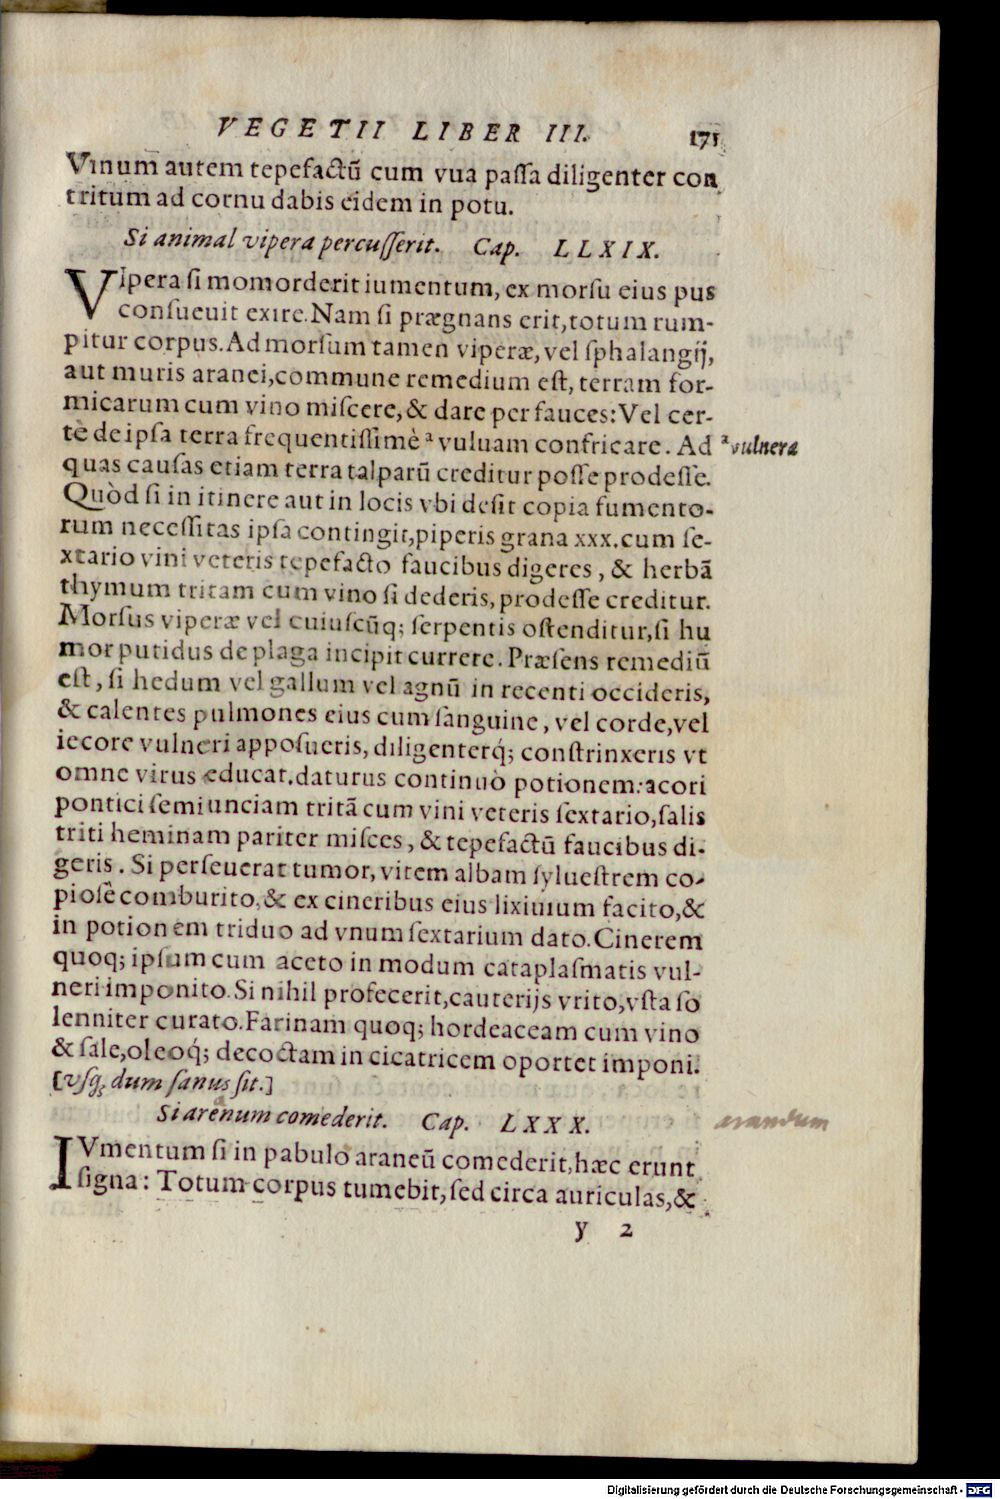 VEGETII LIBER III. 171
Vinum autem tepefactũ cum vua passa diligenter con
tritum ad cornu dabis eidem in potu.
Si animal vipera percusserit. Cap. LLXIX.
VIpera si momorderit iumentum, ex morsu eius pus
consueuit exire. Nam si prægnans erit, totum rum-
pitur corpus. Ad morsum tamen viperæ, vel sphalangij,
aut muris aranei, commune remedium est, terram for-
micarum cum vino miscere, & dare per fauces: Vel cer-
tè de ipsa terra frequentissimè ᵃ vuluam confricare. Ad ᵃ vulnera
quas causas etiam terra talparũ creditur posse prodesse.
Quòd si in itinere aut in locis vbi desit copia fumento-
rum necessitas ipsa contingit, piperis grana xxx. cum se-
xtario vini veteris tepefacto faucibus digeres, & herbã
thymum tritam cum vino si dederis, prodesse creditur.
Morsus viperæ vel cuiuscũq; serpentis ostenditur, si hu
mor putidus de plaga incipit currere. Præsens remediũ
est, si hedum vel gallum vel agnũ in recenti occideris,
& calentes pulmones eius cum sanguine, vel corde, vel
iecore vulneri apposueris, diligenterq́; constrinxeris vt
omne virus educat. daturus continuò potionem: acori
pontici semiunciam tritã cum vini veteris sextario, salis
triti heminam pariter misces, & tepefactũ faucibus di-
geris. Si perseuerat tumor, vitem albam syluestrem co-
piosè comburito, & ex cineribus eius lixiuium facito, &
in potionem triduo ad vnum sextarium dato. Cinerem
quoq; ipsum cum aceto in modum cataplasmatis vul-
neri imponito. Si nihil profecerit, cauterijs vrito, vsta so
lenniter curato. Farinam quoq; hordeaceam cum vino
& sale, oleoq́; decoctam in cicatricem oportet imponi.
[vsq; dum sanus sit.]
Si arenum comederit. Cap. LXXX.
IVmentum si in pabulo araneũ comederit, hæc erunt
signa: Totum corpus tumebit, sed circa auriculas, &
y 2
Digitalisierung gefördert durch die Deutsche Forschungsgemeinschaft - DFG